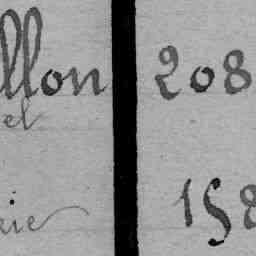 llon 208
el
eie 158